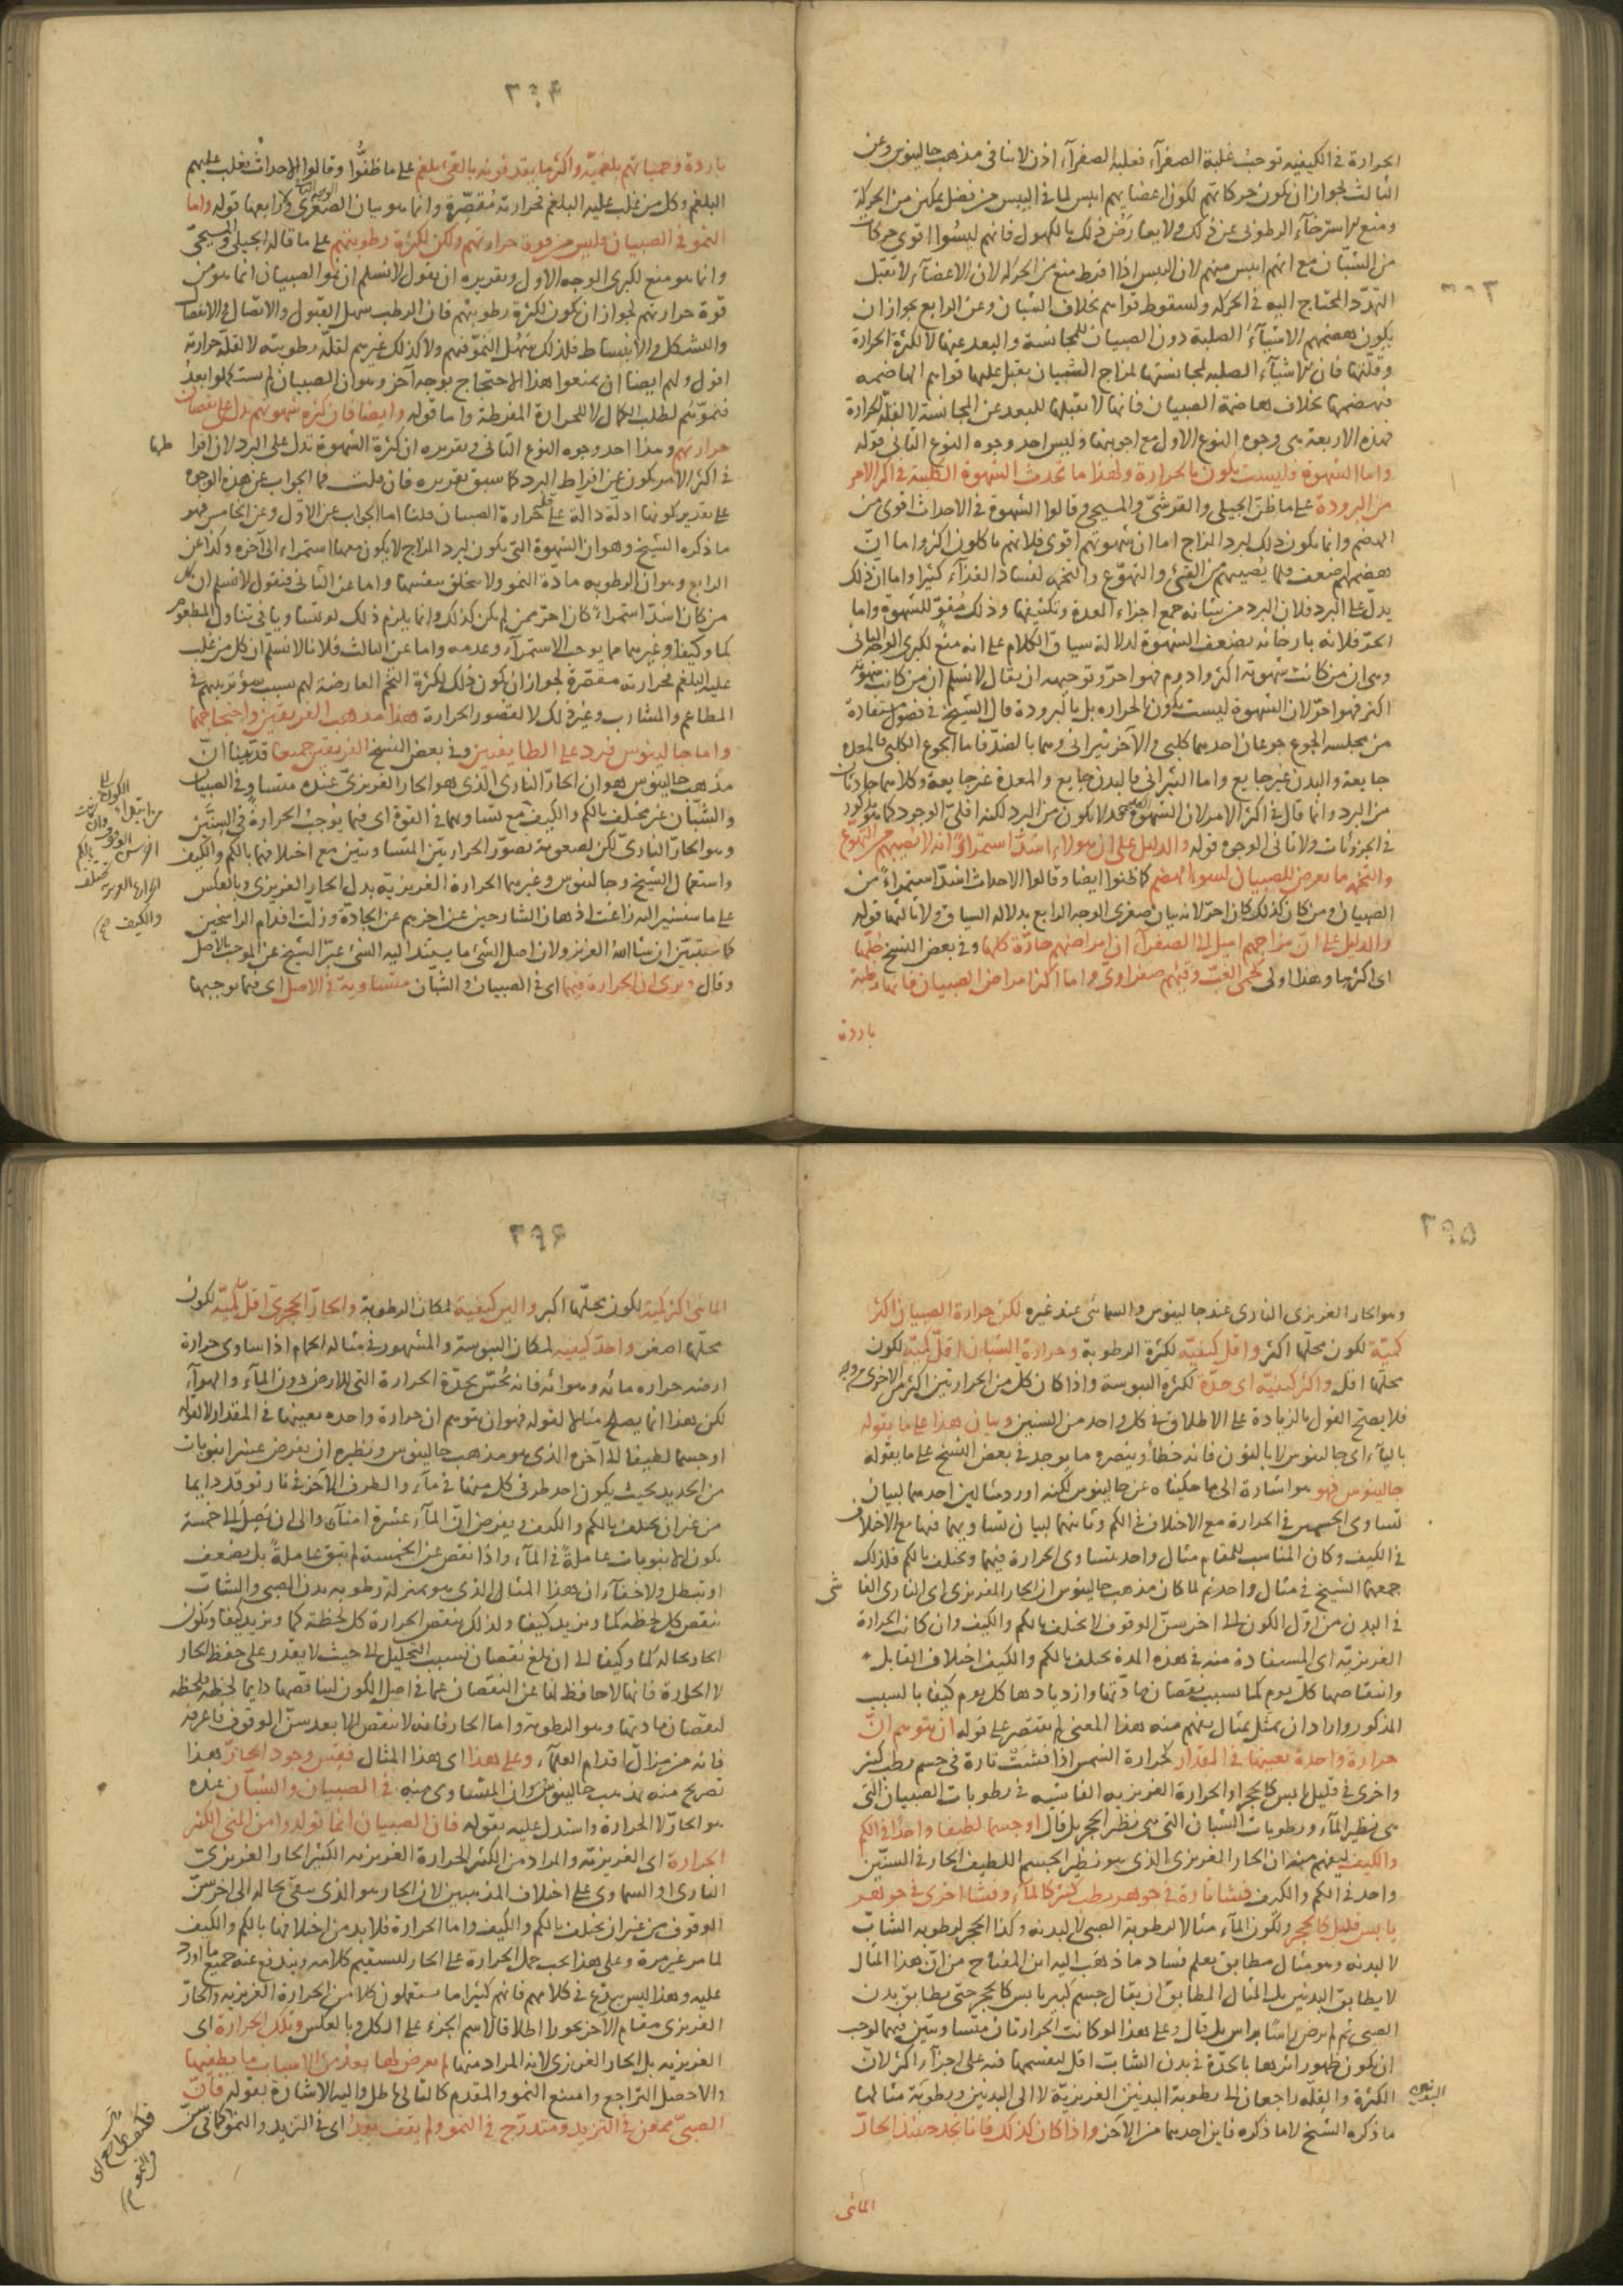 ٣٩٣
الحرارة فى الكيفيه توجب غلبة الصفرآء فغلبة الصفرآء اذن لا ينافى مذهب جالينوس وعن
الثالث لجواز ان يكون حركاتهم لكون اعضايهم ايبس لما فى اليبس من فضل يمكن من الحركة
ومنع استرخآء الرطوبى عن ذلك ولا يعارض ذلك بالكهول فانهم ليسوا اقوى حركات
من الشبّان مع انهم ايبس منهم لان اليبس اذا افرط منع من الحركة لان الاعضآء لا تقبل
التمدّد المحتاج اليه فى الحركة ولسقوط قواهم بخلاف الشبان وعن الرابع بجواز ان
يكون هضمهم الاشيآء الصلبة دون الصبيان للمجانسة والبعد عنها لا لكثرة الحرارة
وقلّتها فان الاشيآء الصلبه لمجانستها لمزاج الشبان يقبل عليها قواهم الهاضمه
فتهضمها بخلاف هاضمة الصبيان فانها لا تقبلها للبعد عن المجانسة لا لقلة الحرارة
فهذه الاربعة هى وجوه النوع الاول مع اجوبتها وليس احد وجوه النوع الثانى قوله
واما الشهوة فليست يكون بالحرارة ولهذا ما تحدث الشهوة الكلبية فى اكثر الامر
من البرودة على ما ظن الجيلى والقرشىّ والمسيحى وقالوا الشهوة فى الاحداث اقوى من
الهضم وانما يكون ذلك لبرد المزاج اما ان شهوتهم اقوى فلانهم ياكلون اكثر واما انّ
هضمهم اضعف فلما يصيبهم من القىء والتهوّع والتخمه لفساد الغذآء كثيرا واما انّ ذلك
يدلّ على البرد فلان البرد من شانه جمع اجزاء المعدة وتكثيفها وذلك مقوّ للشهوة واما
الحرّ فلانه بارخائه يضعف الشهوة لدلالة سياق الكلام على انه منع لكبرى الوجه الثانى
وهى ان من كانت شهوته اكثر وادوم فهو احرّ وتوجيهه ان يقال لا نسلم ان من كانت شهوته
اكثر فهو احرّ لان الشهوة ليست يكون بالحرارة بل بالبرودة قال الشيخ فى فصول مستفادة
من مجلسه الجوع جوعان احدهما كلبى والآخر بقرانى وهما بالضدّ فاما الجوع الكلبى فالمعدة
جايعة والبدن غير جايع واما البقرانى فالبدن جايع والمعدة غير جايعة وكلاهما حادثان
من البرد وانما قال فى اكثر الامر لان الشهوة الصحيحة لا يكون من البرد لكنه اقلىّ الوجود كما هو مذكور
فى الجزئيات ولا تانى الوجوه قوله والدليل على ان هولاء اشدّ استمراءً انه لا يصيبهم من التهوّع
والتخمه ما يعرض للصبيان لسوء الهضم كما ظنوا ايضا وقالوا الاحداث اشدّ استمراءً من
الصبيان ومن كان كذلك كان احرّ لانه بيان صغرى الوجه الرابع بدلالة السياق ولا ثالثها قوله
والدليل على انّ مزاجهم اميل الى الصفرآء ان امراضهم حارّة كلّها وفى بعض النسخ جلّها
اى اكثرها وهذا اولى كحمى الغبّ وقيئهم صفراوىّ واما اكثر امراض الصبيان فانها رطبة
باردة
٣٩۴
باردة وحمياتهم بلغميّة واكثر ما يقذفونه بالقىء بلغم على ما ظنّوا وقالوا الاحداث تغلب عليهم
البلغم وكل من يغلب عليه البلغم فحرارته مقصّرة وانما هو بيان الصغرى الوجه الثالث وكذا رابعها قوله واما
النمو فى الصبيان فليس من قوة حرارتهم ولكن لكثرة رطوبتهم على ما قاله الجيلى والمسيحىّ
وانما هو منع لكبرى الوجه الاول وتقريره ان يقول لا نسلم ان نمو الصبيان انما هو من
قوة حرارتهم لجواز ان يكون لكثرة رطوبتهم فان الرطب سهل القبول والاتصال والانفصال
والتشكل والانبساط فلذلك يسهل النموّ فيهم ولا كذلك غيرهم لقلّة رطوبته لا لقلّة حرارته
اقول ولهم ايضا ان يمنعوا هذا الاحتجاج بوجه آخر وهو ان الصبيان لم يستكملوا بعد
فنموّهم لطلب الكمال لا للحرارة المفرطة واما قوله وايضا فان كثرة شهوتهم تدل على نقصان
حرارتهم وهذا احد وجوه النوع الثانى وتقريره ان كثرة الشهوة تدل على البرد لان افراطها
فى اكثر الامر يكون عن افراط البرد كما سبق تقريره فان قلت فما الجواب عن هذه الوجوه
على تقدير كونها ادلّة دالة على قلة حرارة الصبيان قلنا اما الجواب عن الاوّل وعن الخامس فهو
ما ذكره الشيخ وهو ان الشهوة التى يكون لبرد المزاج لا يكون معها استمراء الى آخره وكذا عن
الرابع وهو ان الرطوبه مادّة النمو ولا يتخلق بنفسها واما عن الثانى فنقول لا نسلم ان كل
من كان اشدّ استمراءً كان احرّ ممن لم يكن كذلك وانما يلزم ذلك لو تساويا فى تناول المطعوم
كما وكيفا وغيرهما مما يوجب الاستمرآء وعدمه واما عن الثالث فلانا لا نسلّم ان كل من غلب
عليه البلغم فحرارته مقصّرة لجواز ان يكون ذلك لكثرة التخم العارضة لهم بسبب سوء تدبيرهم فى
المطاعم والمشارب وغير ذلك لا لقصور الحرارة هذا مذهب الفريقين واحتجاجهما
واما جالينوس فيرد على الطايفتين وفى بعض النسخ الفريقين جميعا قد بيّنا انّ
مذهب جالينوس هو ان الحارّ النارى الذى هو الحار الغريزىّ عنده متساو فى الصبيان
والشبّان غير مختلف بالكم والكيف مع تساويهما فى القوة اى فيما يوجب الحرارة فى السنّين
وهو الحارّ النارىّ لكن لصعوبة تصوّر الحرارتين المتساويتين مع اختلافهما بالكم والكيف
واستعمال الشيخ وجالينوس وغيرهما الحرارة الغريزيّة بدل الحار الغريزى وبالعكس
على ما سنشير اليه زاغت اذهان الشارحين عن اخرهم عن الجادّة وزلّت اقدام الراسخين
كما ستبيّن ان شا اللّه العزيز ولان اصل الشئ ما يستند اليه الشئ عبّر الشيخ عن الموجب بالاصل
وقال ويرى ان الحرارة فيهما اى فى الصبيان والشبّان متساوية فى الاصل اى فيما يوجبها
٣٩۵
وهو الحار الغريزى النارى عند جالينوس والسمائى عند غيره لكن حرارة الصبيان اكثر
كميّة لكون محلّها اكثر واقل كيفيّه لكثرة الرطوبة وحرارة الشبان اقلّ كميّة لكون
محلّها اقل واكثر كيفيّه اى حدّة لكثرة اليبوسة واذا كان كلّ من الحرارتين اكثر من الاخرى من وجه
فلا يصحّ القول بالزيادة على الاطلاق فى كل واحد من السنين وبيان هذا على ما يقوله
باليآء اى جالينوس لا بالنون فانه خطأ وينصره ما يوجد فى بعض النسخ على ما يقوله
جالينوس فهو هو اشارة الى ما حكيناه عن جالينوس لكنه اورد مثالين احدهما لبيان
تساوى الجسمين فى الحرارة مع الاختلاف فى الكم وثانيهما لبيان تساويهما فيها مع الاختلاف
فى الكيف وكان المناسب للمقام مثال واحد يتساوى الحرارة فيهما ويختلف بالكم فلذلك
جمعهما الشيخ فى مثال واحد ثم لما كان مذهب جالينوس ان الحار الغريزى اى النارى الفاشى
فى البدن من اوّل الكون الى اخر سنّ الوقوف لا يختلف بالكم والكيف وان كانت الحرارة
الغريزيّة اى المستفادة منه فى هذه المدة يختلف بالكم والكيف لاختلاف القابل
وانتقاصها كلّ يوم كما بسبب نقصان مادّتها وازديادها كل يوم كيفا بالسبب
المذكور واراد ان يمثل بمثال يفهم منه هذا المعنى لم يقتصر على قوله ان يتوهم انّ
حرارة واحدة بعينها فى المقدار كحرارة الشمس اذا فشت تارة فى جسم رطب كثير
واخرى فى قليل يابس كالحجر او الحرارة الغريزيه الفاشيه فى رطوبات الصبيان التى
هى نظير المآء ورطوبات الشبان التى هى نظير الحجر بل قال او جسما لطيفا واحدا فى الكم
والكيف ليفهم منه ان الحار الغريزى الذى هو نظير الجسم اللطيف الحار فى السنّين
واحد فى الكم والكيف فشا تارة فى جوهر رطب كثير كالمآء وفشا اخرى فى جوهر
يابس قليل كالحجر ولكون المآء مثالا لرطوبة الصبى لا لبدنه وكذا الحجر لرطوبه الشاب
لا لبدنه وهو مثال مطابق يعلم فساد ما ذهب اليه ابن المفتاح من انّ هذا المثال
لا يطابق البدنين بل المثال المطابق ان يقال جسم كبير يابس كالحجر حتى يطابق بدن
الصبى ثم لم يرض راسًا براس بل قال وعلى هذا لو كانت الحرارتان متساويتين فيهما لوجب
ان يكون ظهور اثرها بالحدّة فى بدن الشاب اقل لتقسمها فيه على اجزآء اكثر لانّ
الكثرة والقلّه راجعان الى رطوبة البدنين الغريزيّة لا الى البدنين ورطوبة مثالها
ما ذكره الشيخ لا ما ذكره فاين احدهما من الآخر واذا كان كذلك فانا نجد حينئذ الحارّ
المائى
٣٩۶
المائى اكثر كميّة لكون محلّها اكبر والين كيفية لمكان الرطوبة والحارّ الحجرىّ اقلّ كميّة لكون
محلّها اصغر واحدّ كيفيه لمكان اليبوسة والمشهور فى مثاله الحمام اذا ساوى حرارة
ارضه حراره مائه وهوائه فانه يحسّ بحدّة الحرارة التى للارض دون المآء والهوآء
لكن هذا انما يصلح مثالا لقوله فهو ان يتوهم ان حرارة واحده بعينها فى المقدار لا لقوله
او جسما لطيفا الى آخره الذى هو مذهب جالينوس ونظيره ان يفرض عشر انبوبات
من الحديد بحيث يكون احد طرفى كل منها فى مآء والطرف الآخر فى نار توقد دايما
من غير ان يختلف بالكم والكيف ويفرض انّ المآء عشرة امنآء والى ان يصل الى خمسة
يكون الانبوبات عاملة فى المآء واذا نقص عن الخمسة لم تبق عاملةً بل يضعف
او تبطل ولا خفآء ان هذا المثال الذى هو بمنزلة رطوبه بدن الصبى والشاب
ينقص كل لحظه كما ويزيد كيفا ولذلك ينقص الحرارة كل لحظة كما ويزيد كيفا ويكون
الحار بحاله كما وكيفا الى ان بلغ نقصان بسبب التحليل الى حيث لا يقدر على حفظ الحار
لا الحرارة فانها لا حافظ لها عن النقصان عما فى اصل الكون لتناقصها دايما لحظة فلحظه
لنقصان مادتها وهو الرطوبة واما الحار فانه لا ينقص الا بعد سنّ الوقوف فاعرفه
فانه من مزالّ اقدام العلمآء وعلى هذا اى هذا المثال فقس وجود الحارّ هذا
تصريح منه بمذهب جالينوس وان المتساوى فيه فى الصبيان والشبّان عنده
هو الحارّ لا الحرارة واستدل عليه بقوله فان الصبيان انما تولدوا من المنى الكثير
الحرارة اى الغريزيّه والمراد من الكثير الحرارة الغريزيه الكثير الحار الغريزىّ
النارى او السماوى على اختلاف المذهبين لان الحار هو الذى يبقى بحاله الى اخر سنّ
الوقوف من غير ان يختلف بالكم والكيف واما الحرارة فلا بد من اختلافها بالكم والكيف
لما مر غير مرة وعلى هذا يجب حمل الحرارة على الحار ليستقيم كلامه ويندفع عنه جميع ما اورد
عليه وهذا ليس ببدع فى كلامهم فانهم كثيرا ما يستعملون كلا من الحرارة الغريزيه والحارّ
الغريزى مقام الآخر تجوزا اطلاقا لاسم الجزء على الكل وبالعكس وتلك الحرارة اى
الغريزيه بل الحار الغريزى لانه المراد منها لم يعرض لها بعد من الاسباب ما يطفيها
والا حصل التراجع وامتنع النمو والمقدم كالتالى باطل واليه الاشارة بقوله فانّ
الصبىّ ممعن فى التزيد ومتدرّج فى النمو ولم يقف بعد اى فى التزيد والنمو